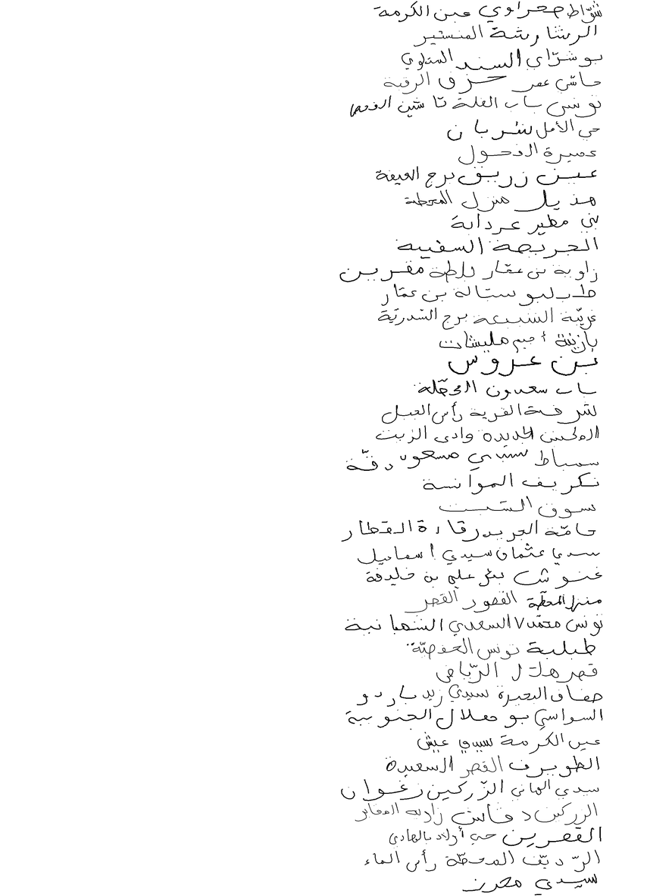 شوّاط صحراوي عين الكرمة
الرشارشة المنستير
بوشرّاي السند المتلوي
حاشي عمر حزق الرقبة
تونس باب العلة
حي الأمل شربان
عميرة الفحول
عين زريق برج العيفة
هذيل منزل المحطة
بني مطير عردانة
الجريصة السفيبة
زاوية بن عمّار للطة مقرين
طبلبو ستالة بن عمّار
غريّبة السبيعة برج السدريّة
بازينة أميم مليشات
بن عروس
باب سعدون المحطّة
لشرفة القرية رأس الجبل
المكنين الجديدة وادي الزيت
سمباط سيدي مسعود دقّة
نكريف الموانسة
سوق السبت
حامّة الجريد رقادة القطار
سيدي عثمان سيدي اسماعيل
غنوش علي بن خليفة
منزل المحطّة القصور القصر
تونس محمد٧ السعدي الشمانية
طبلبة تونس الحفصيّة
قصر هلال الرياض
ضفاف البحيرة سيدي زيد باردو
السواسي بو هلال الجنوبية
عين الكرمة سيدي عيش
الطويرف القصر السعيدة
سيدي الهاني الزركين زغوان
الزركين دقاش زاوية
القصرين حي أولاد بالهادي
الرديّف المحطّة رأس الماء
سيدي محرز